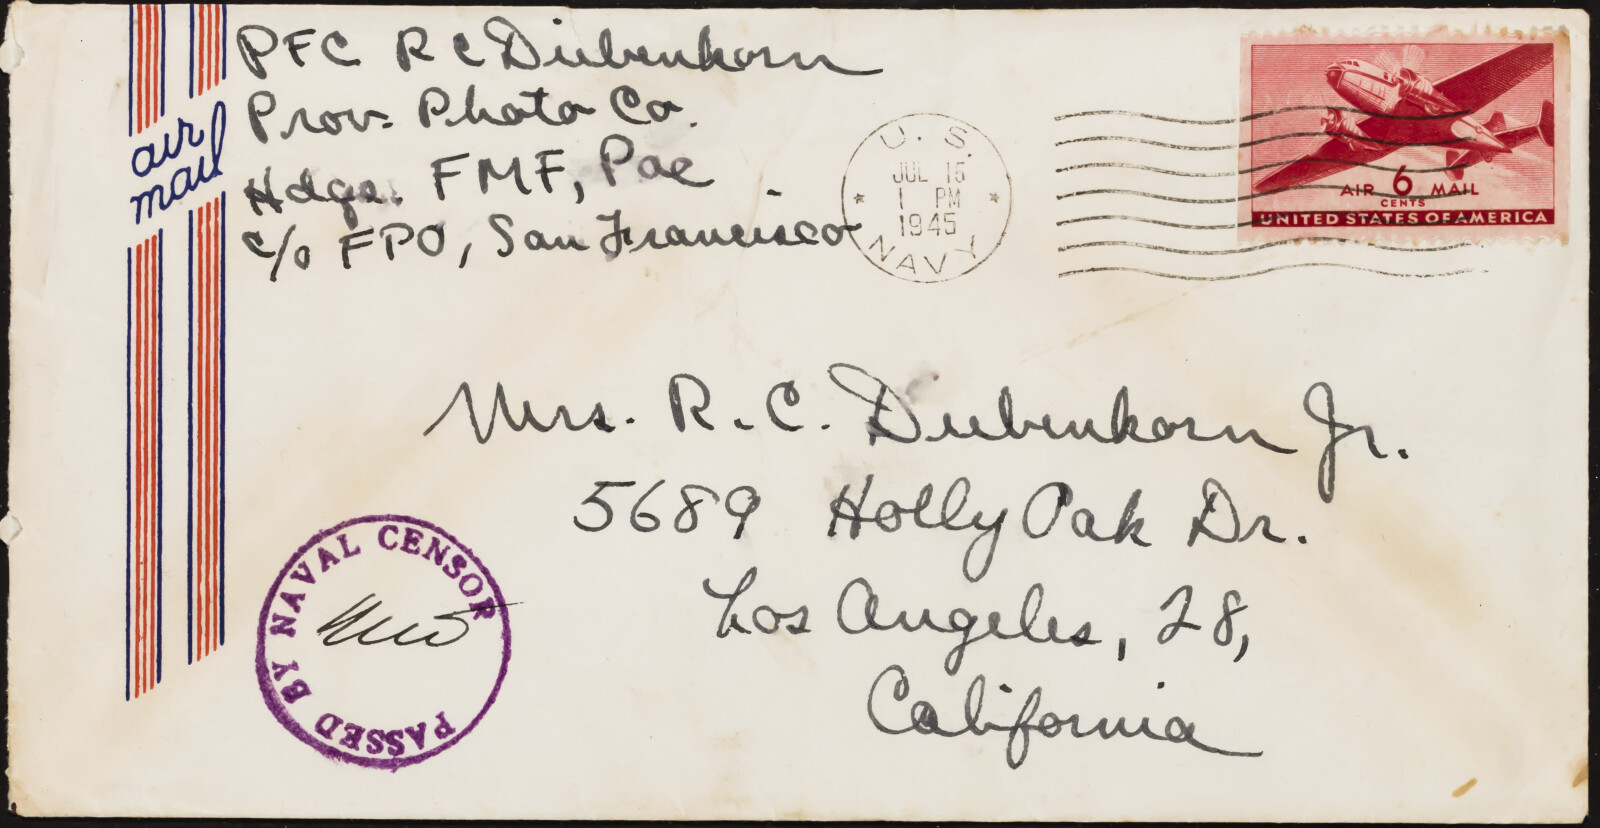 air
mail
PFC R C Diebenkorn
Prov. Photo Co.
Hdqs. FMF, Pac
c/o FPO, San Francisco
U. S.
JUL 15
1 PM
1945
NAVY
AIR 6 MAIL
CENTS
UNITED STATES OF AMERICA
Mrs. R. C. Diebenkorn Jr.
5689 Holly Oak Dr.
Los Angeles, 28,
California
PASSED BY NAVAL CENSOR